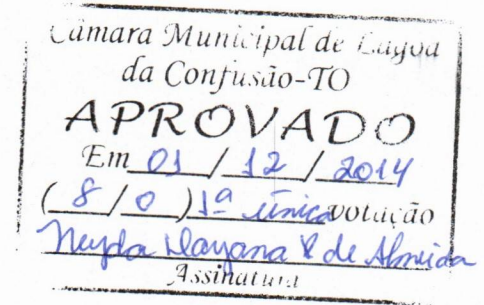 Câmara Municipal de Lagoa
da Confusão-TO
APROVADO
Em 01 / 12 / 2014
( 8 / 0 ) 1ª única votação
Dayana R de Almeida
Assinatura